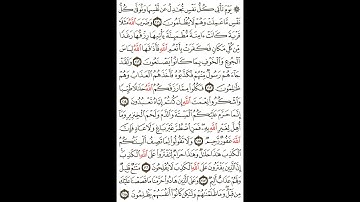 يَوْمَ تَأْتِي كُلُّ نَفْسٍ تُجَادِلُ عَن نَّفْسِهَا وَتُوَفَّىٰ كُلُّ
نَفْسٍ مَّا عَمِلَتْ وَهُمْ لَا يُظْلَمُونَ ۝ وَضَرَبَ اللَّهُ مَثَلًا
قَرْيَةً كَانَتْ ءَامِنَةً مُّطْمَئِنَّةً يَأْتِيهَا رِزْقُهَا رَغَدًا
مِّن كُلِّ مَكَانٍ فَكَفَرَتْ بِأَنْعُمِ اللَّهِ فَأَذَاقَهَا اللَّهُ لِبَاسَ
الْجُوعِ وَالْخَوْفِ بِمَا كَانُوا يَصْنَعُونَ ۝ وَلَقَدْ
جَاءَهُمْ رَسُولٌ مِّنْهُمْ فَكَذَّبُوهُ فَأَخَذَهُمُ الْعَذَابُ وَهُمْ
ظَالِمُونَ ۝ فَكُلُوا مِمَّا رَزَقَكُمُ اللَّهُ حَلَالًا طَيِّبًا
وَاشْكُرُوا نِعْمَتَ اللَّهِ إِن كُنتُمْ إِيَّاهُ تَعْبُدُونَ ۝
إِنَّمَا حَرَّمَ عَلَيْكُمُ الْمَيْتَةَ وَالدَّمَ وَلَحْمَ الْخِنزِيرِ وَمَا
أُهِلَّ لِغَيْرِ اللَّهِ بِهِ فَمَنِ اضْطُرَّ غَيْرَ بَاغٍ وَلَا عَادٍ فَإِنَّ
اللَّهَ غَفُورٌ رَّحِيمٌ ۝ وَلَا تَقُولُوا لِمَا تَصِفُ أَلْسِنَتُكُمُ
الْكَذِبَ هَٰذَا حَلَالٌ وَهَٰذَا حَرَامٌ لِّتَفْتَرُوا عَلَى اللَّهِ
الْكَذِبَ إِنَّ الَّذِينَ يَفْتَرُونَ عَلَى اللَّهِ الْكَذِبَ لَا يُفْلِحُونَ ۝ مَتَاعٌ قَلِيلٌ
وَلَهُمْ عَذَابٌ أَلِيمٌ ۝ وَعَلَى الَّذِينَ هَادُوا حَرَّمْنَا مَا قَصَصْنَا عَلَيْكَ
مِن قَبْلُ وَمَا ظَلَمْنَاهُمْ وَلَٰكِن كَانُوا أَنفُسَهُمْ يَظْلِمُونَ ۝